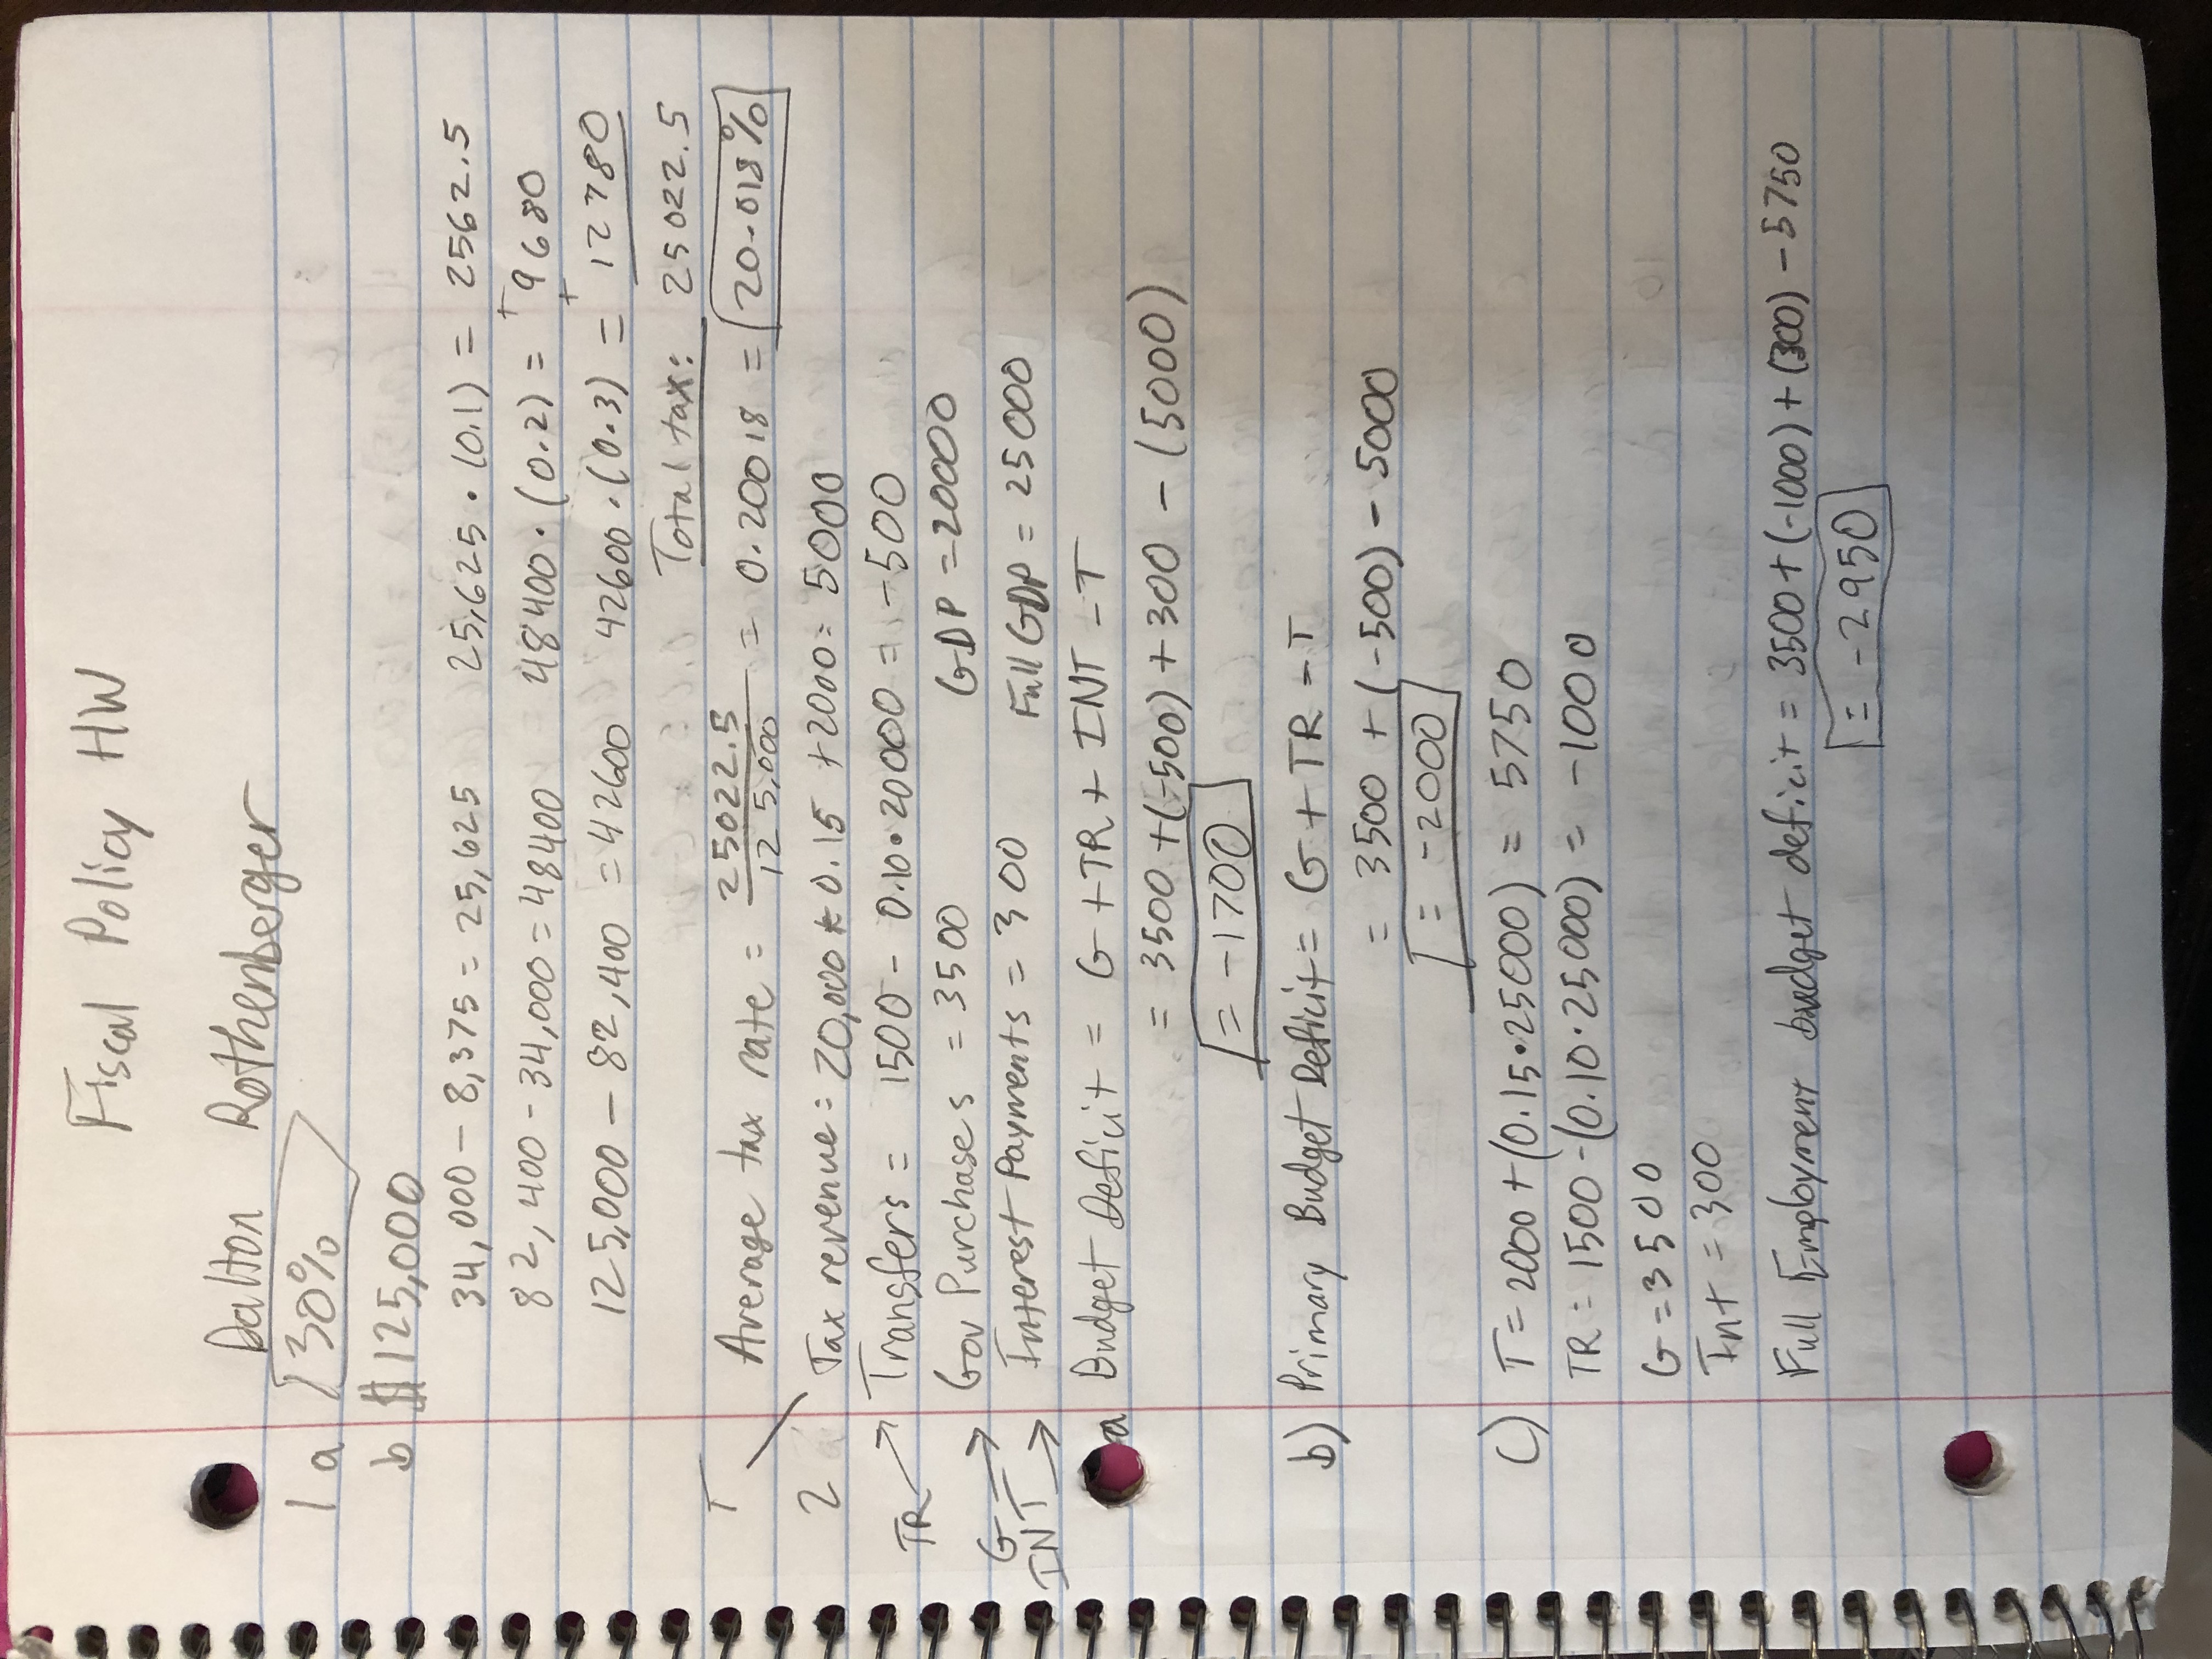 Fiscal Policy HW
Dalton Rothenberger
1 a 30%
b $125,000
34,000 - 8,375 = 25,625 25,625 • (0.1) = 2562.5
82,400 - 34,000 = 48400 48400 • (0.2) = + 9680
125,000 - 82,400 = 42600 42600 • (0.3) = + 12780
Total tax: 25022.5
Average tax rate = 25022.5 / 125,000 = 0.20018 = 20.018%
T
2 Tax revenue = 20,000 * 0.15 + 2000 = 5000
TR → Transfers = 1500 - 0.10 • 20000 = -500
G → Gov Purchases = 3500 GDP = 20000
INT → Interest Payments = 300 Full GDP = 25000
a Budget Deficit = G + TR + INT - T
= 3500 + (-500) + 300 - (5000)
= -1700
b) Primary Budget Deficit = G + TR - T
= 3500 + (-500) - 5000
= -2000
c) T = 2000 + (0.15 • 25000) = 5750
TR = 1500 - (0.10 • 25000) = -1000
G = 3500
Int = 300
Full Employment budget deficit = 3500 + (-1000) + (300) - 5750
= -2950